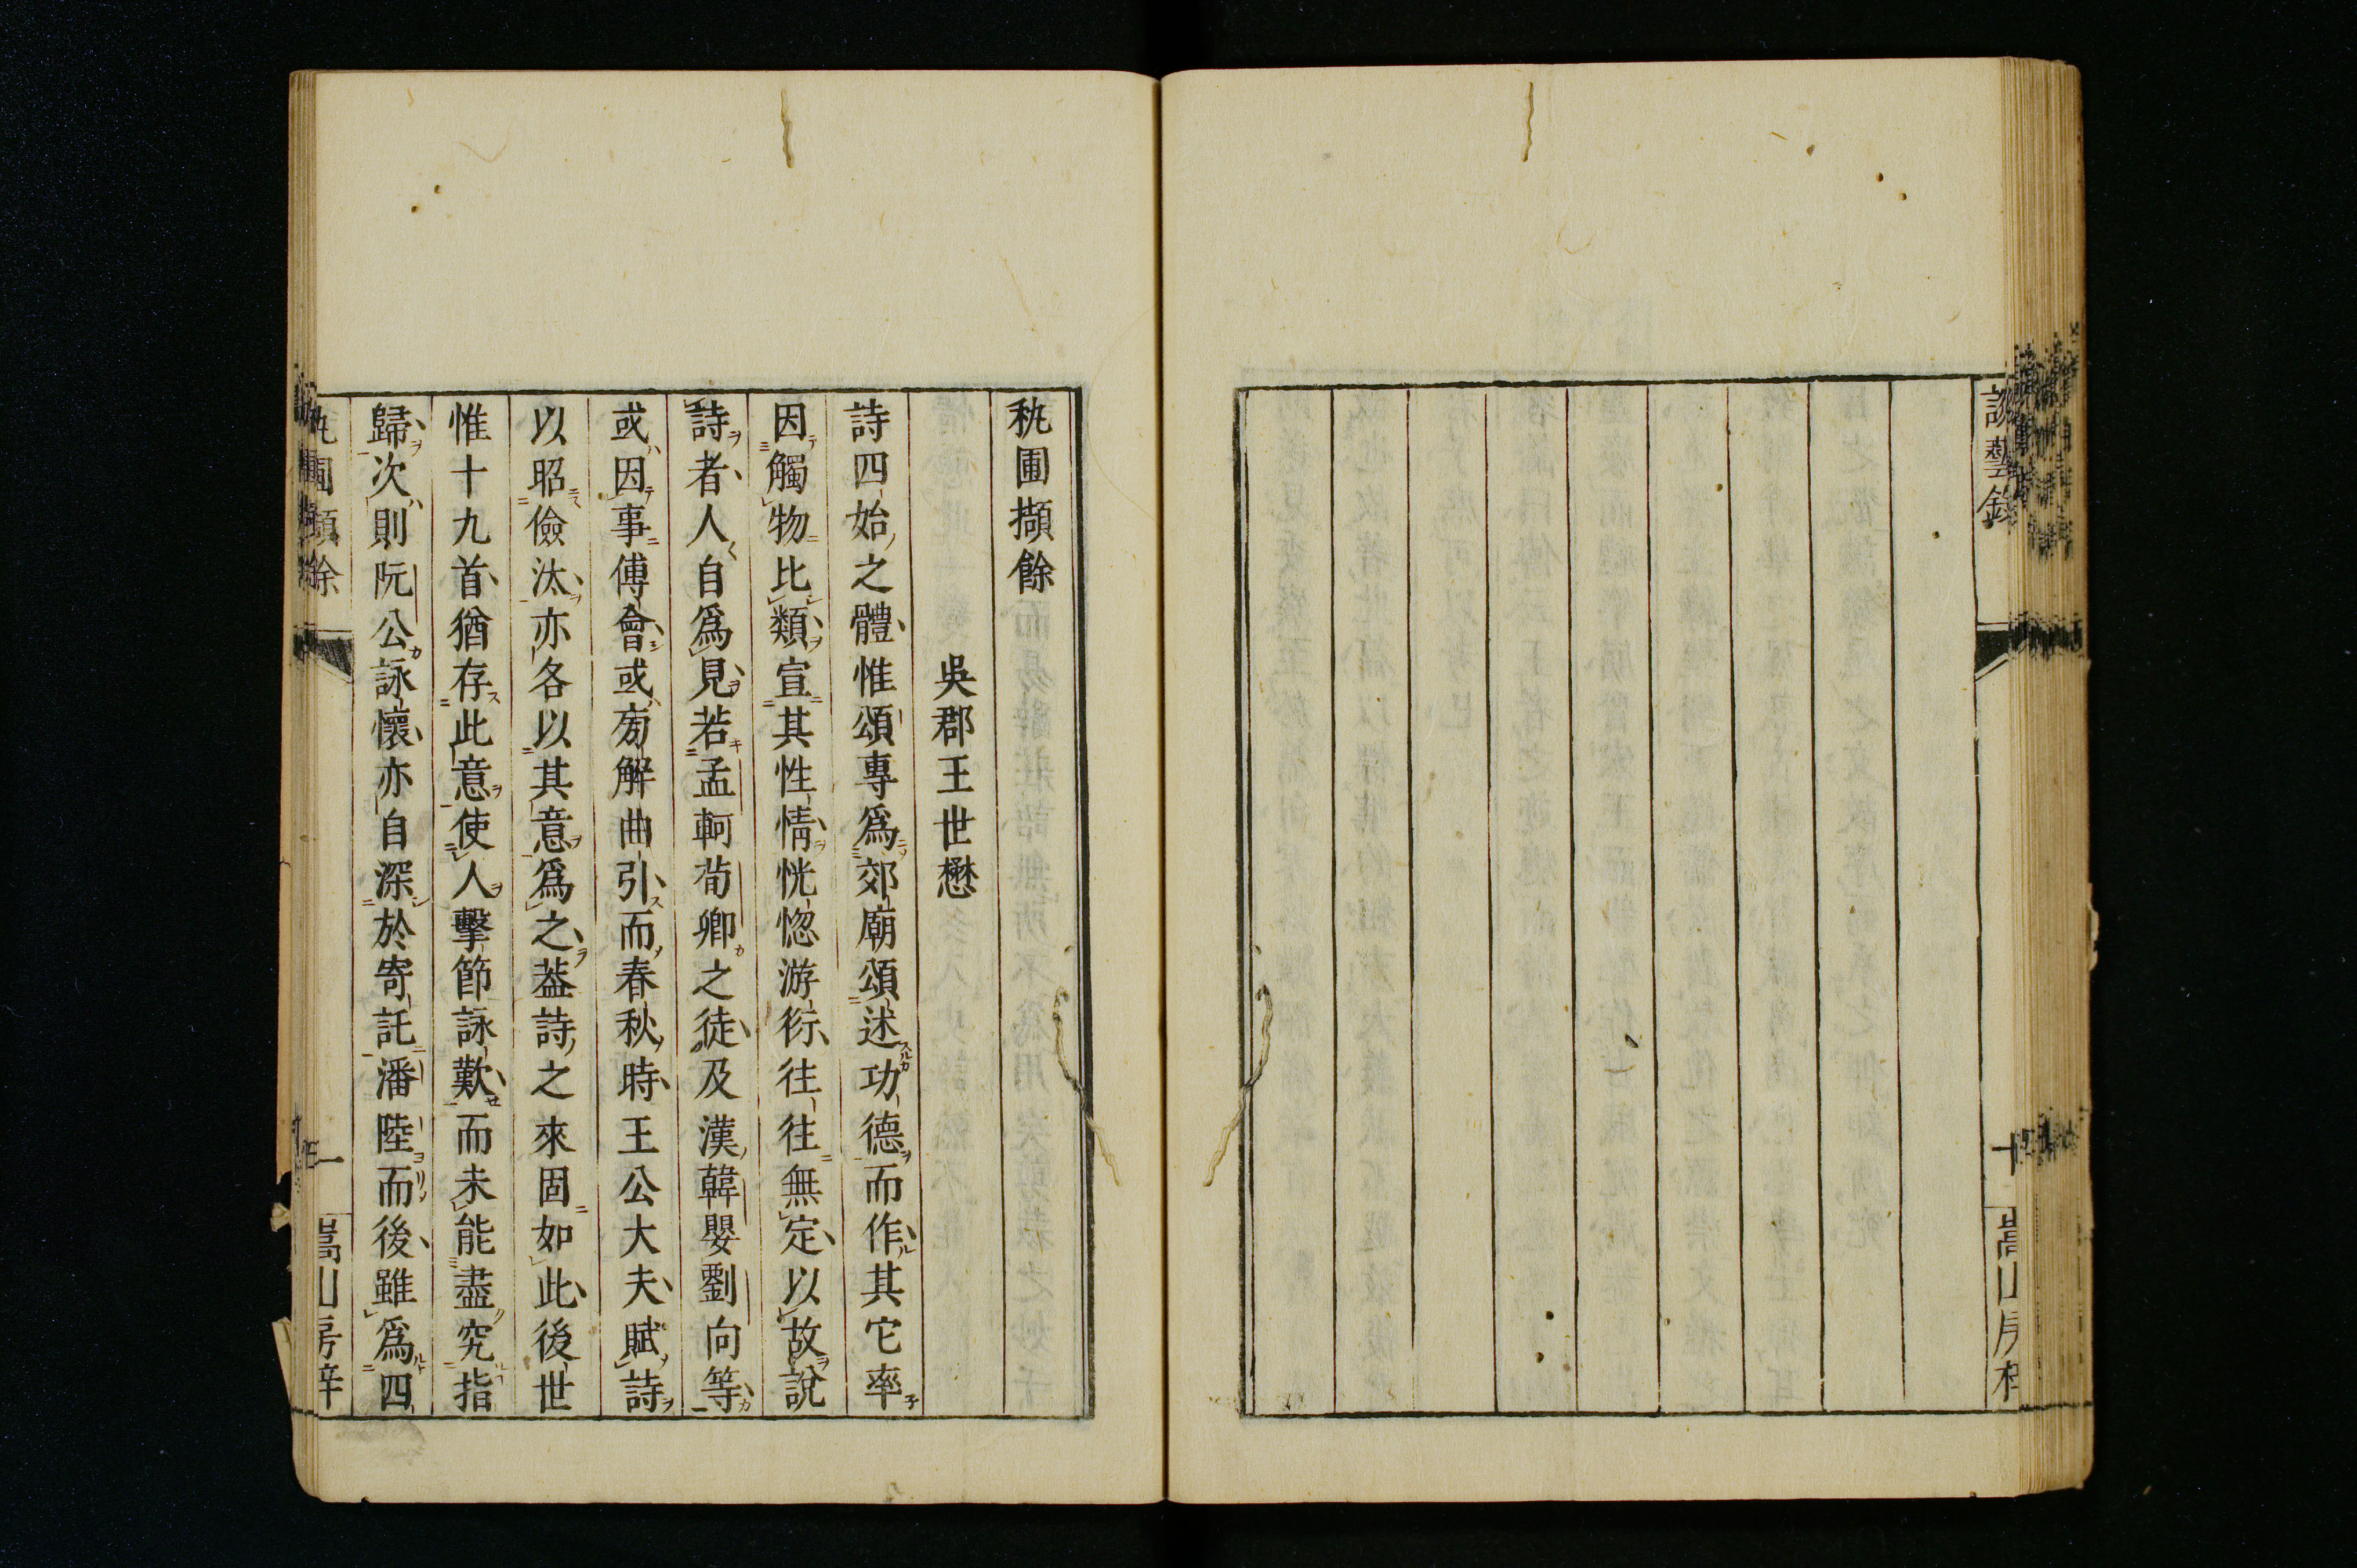 談藝錄
十
嵩山房梓
秇圃擷餘
吳郡王世懋
詩四始之體惟頌專爲郊廟頌述功德而作其它率
因觸物比類宣其性情恍惚游衍往往無定以故說
詩者人自爲見若孟軻荀卿之徒及漢韓嬰劉向等
或因事傅會或㫄解曲引而春秋時王公大夫賦詩
以昭儉汰亦各以其意爲之葢詩之來固如此後世
惟十九首猶存此意使人擊節詠歎而未能盡究指
歸次則阮公詠懷亦自深於寄託潘陸而後雖爲四
秇圃擷餘
一
嵩山房梓